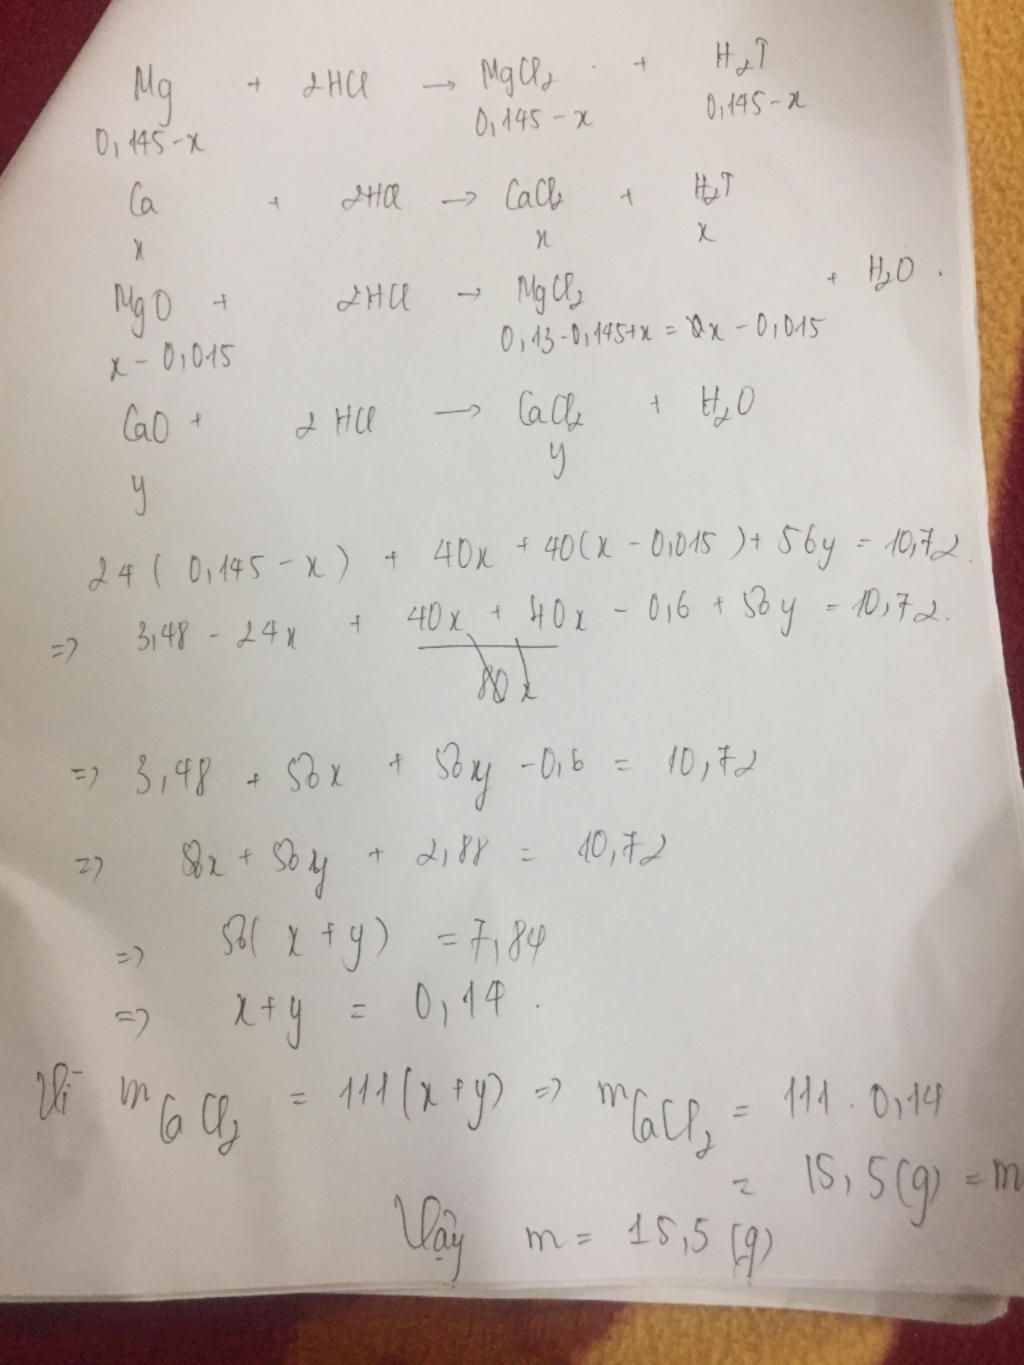 Mg + 2HCl → MgCl₂ + H₂↑
0,145-x 0,145-x 0,145-x
Ca + 2HCl → CaCl₂ + H₂↑
x x x
MgO + 2HCl → MgCl₂ + H₂O .
x - 0,015 0,13-0,145+x = x - 0,015
CaO + 2HCl → CaCl₂ + H₂O
y y
24( 0,145 - x) + 40x + 40(x - 0,015) + 56y = 10,72.
=> 3,48 - 24x + 40x + 40x - 0,6 + 56y = 10,72.
80x
=> 3,48 + 56x + 56y - 0,6 = 10,72
=> 56x + 56y + 2,88 = 10,72
=> 56( x + y) = 7,84
=> x+y = 0,14 .
Vì m CaCl₂ = 111(x+y) => m CaCl₂ = 111 . 0,14
= 15,5(g) = m
Vậy m = 15,5 (g)